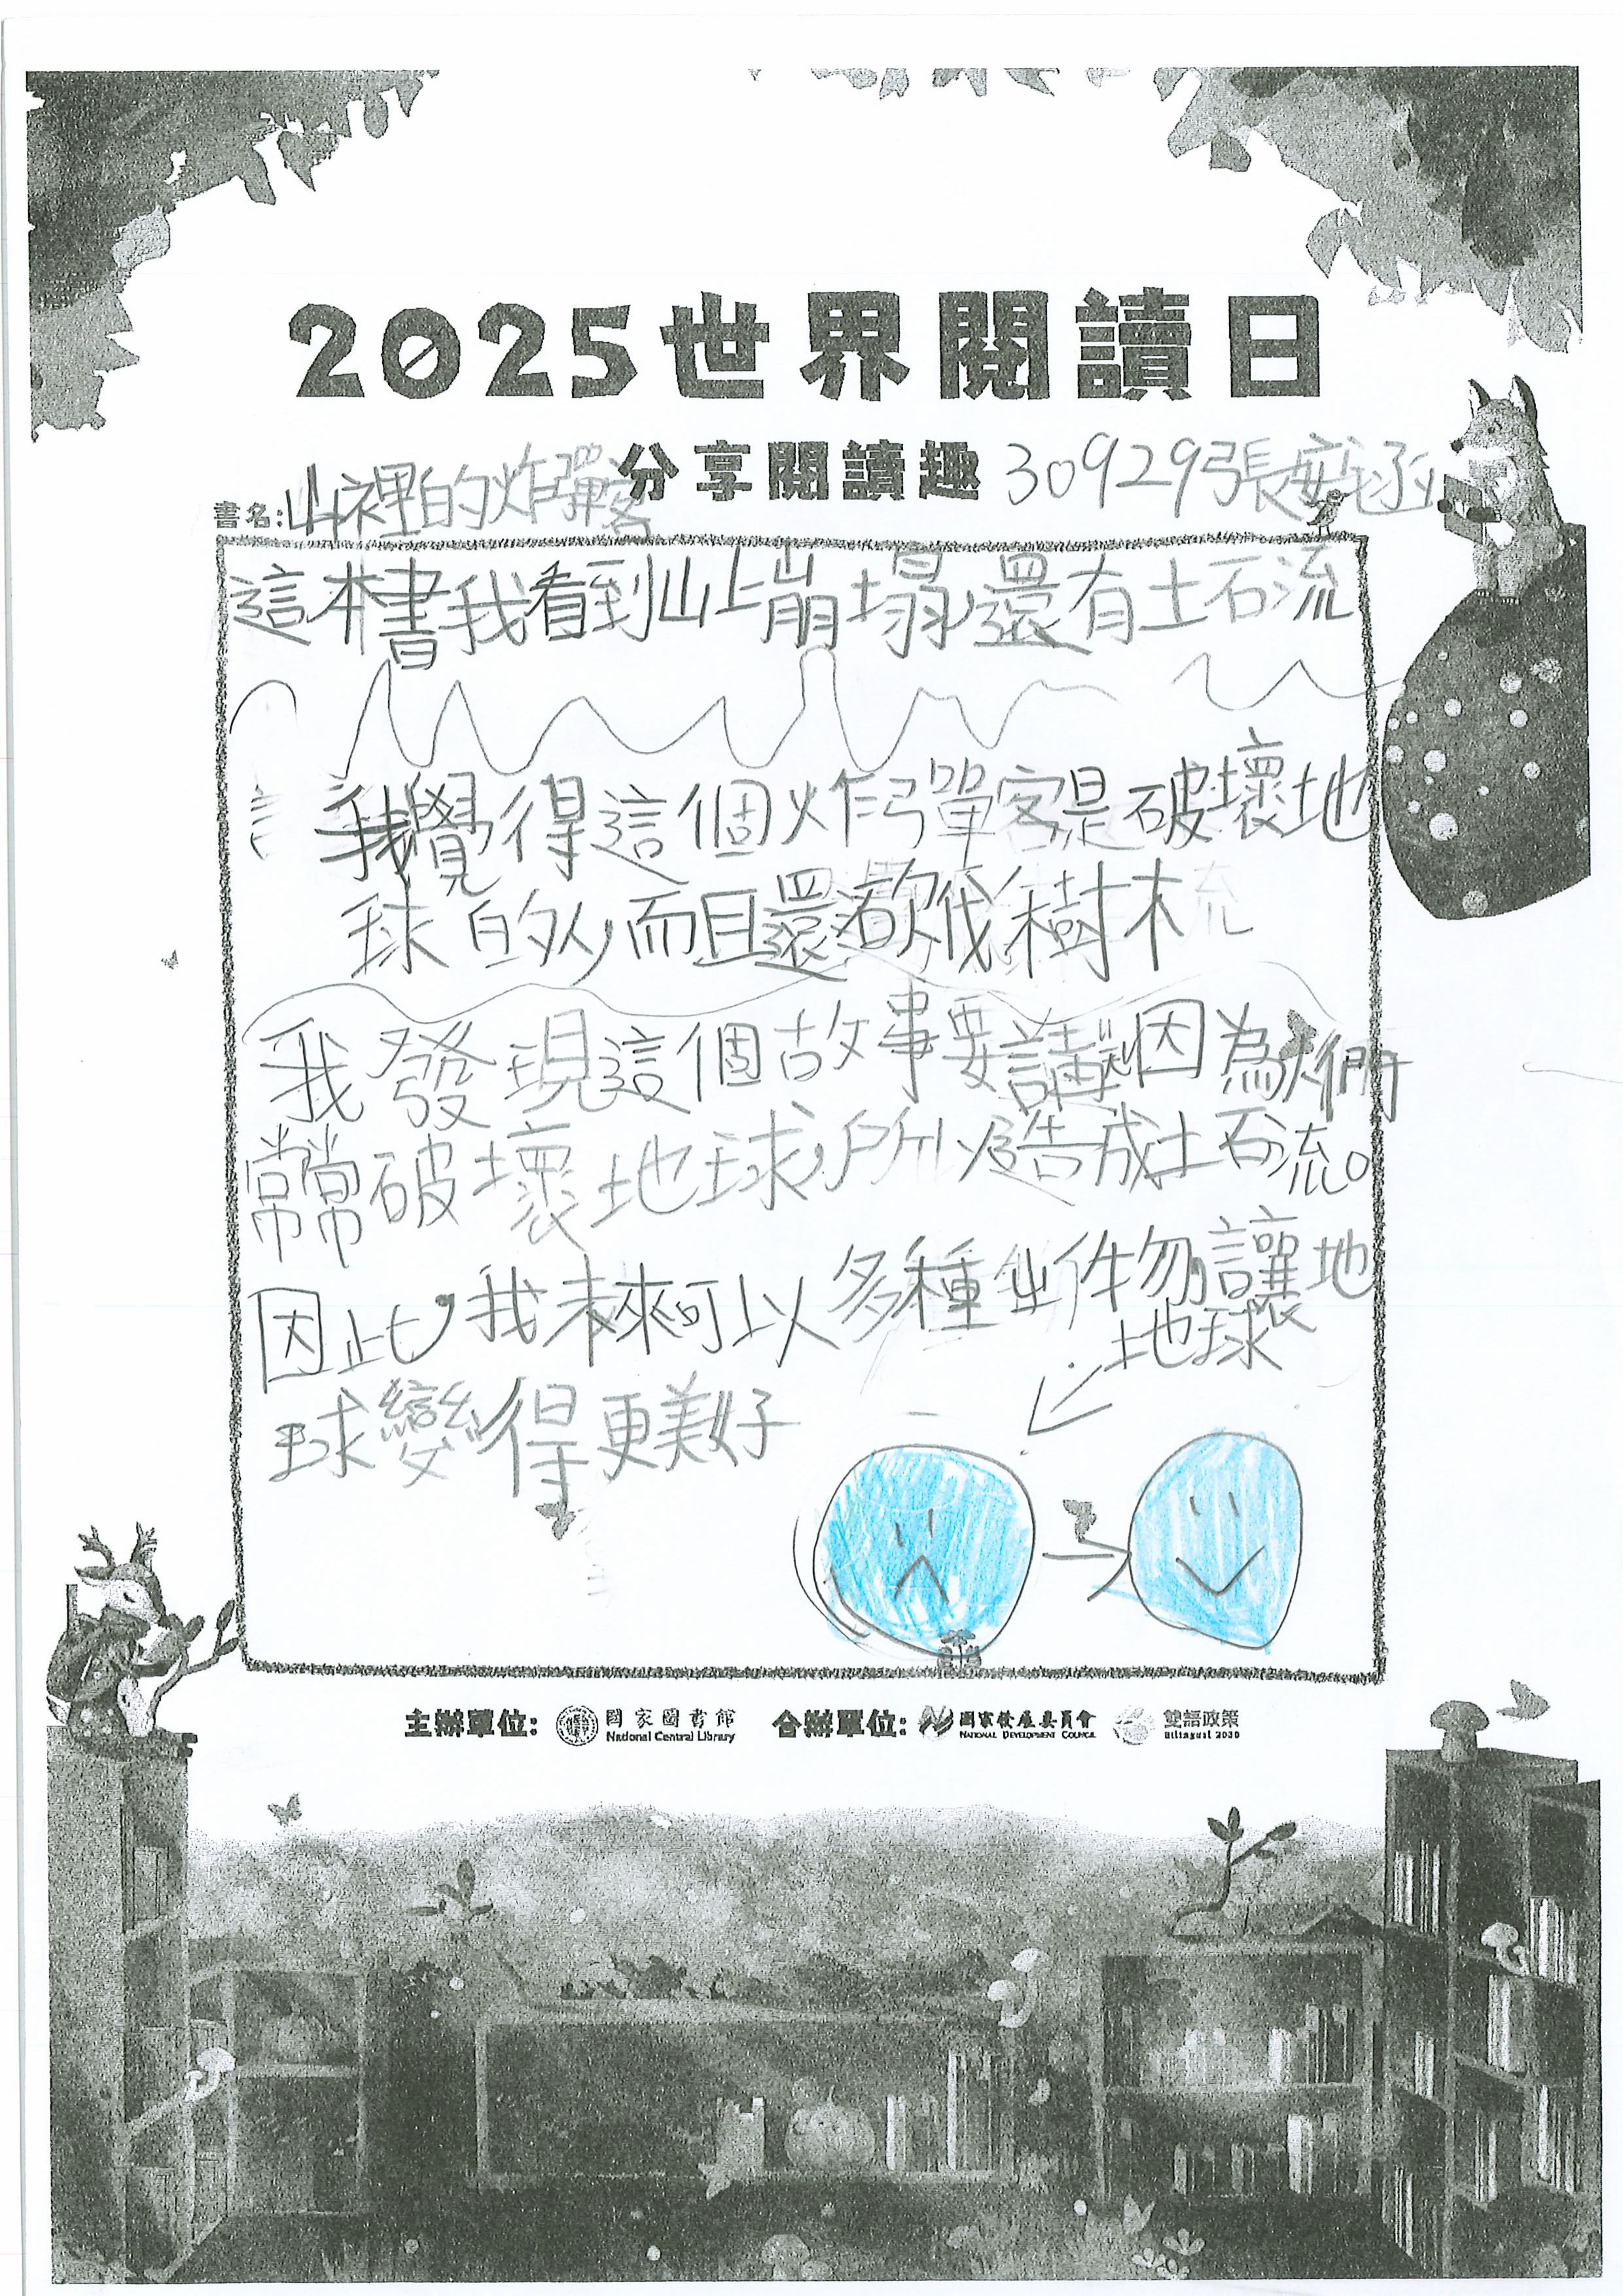 2025世界閱讀日
分享閱讀趣
30929張
書名:山裡的炸彈客
這本書我看到山上崩塌,還有土石流
我覺得這個炸彈客是破壞地
球的人,而且還砍伐樹木
我發現這個故事要講因為人們
常常破壞地球,所以造成土石流。
因此,我未來可以多種植物,讓地
地球
球變得更美好
主辦單位: 國家圖書館 National Central Library 合辦單位: 國家發展委員會 NATIONAL DEVELOPMENT COUNCIL 雙語政策 Bilingual 2030